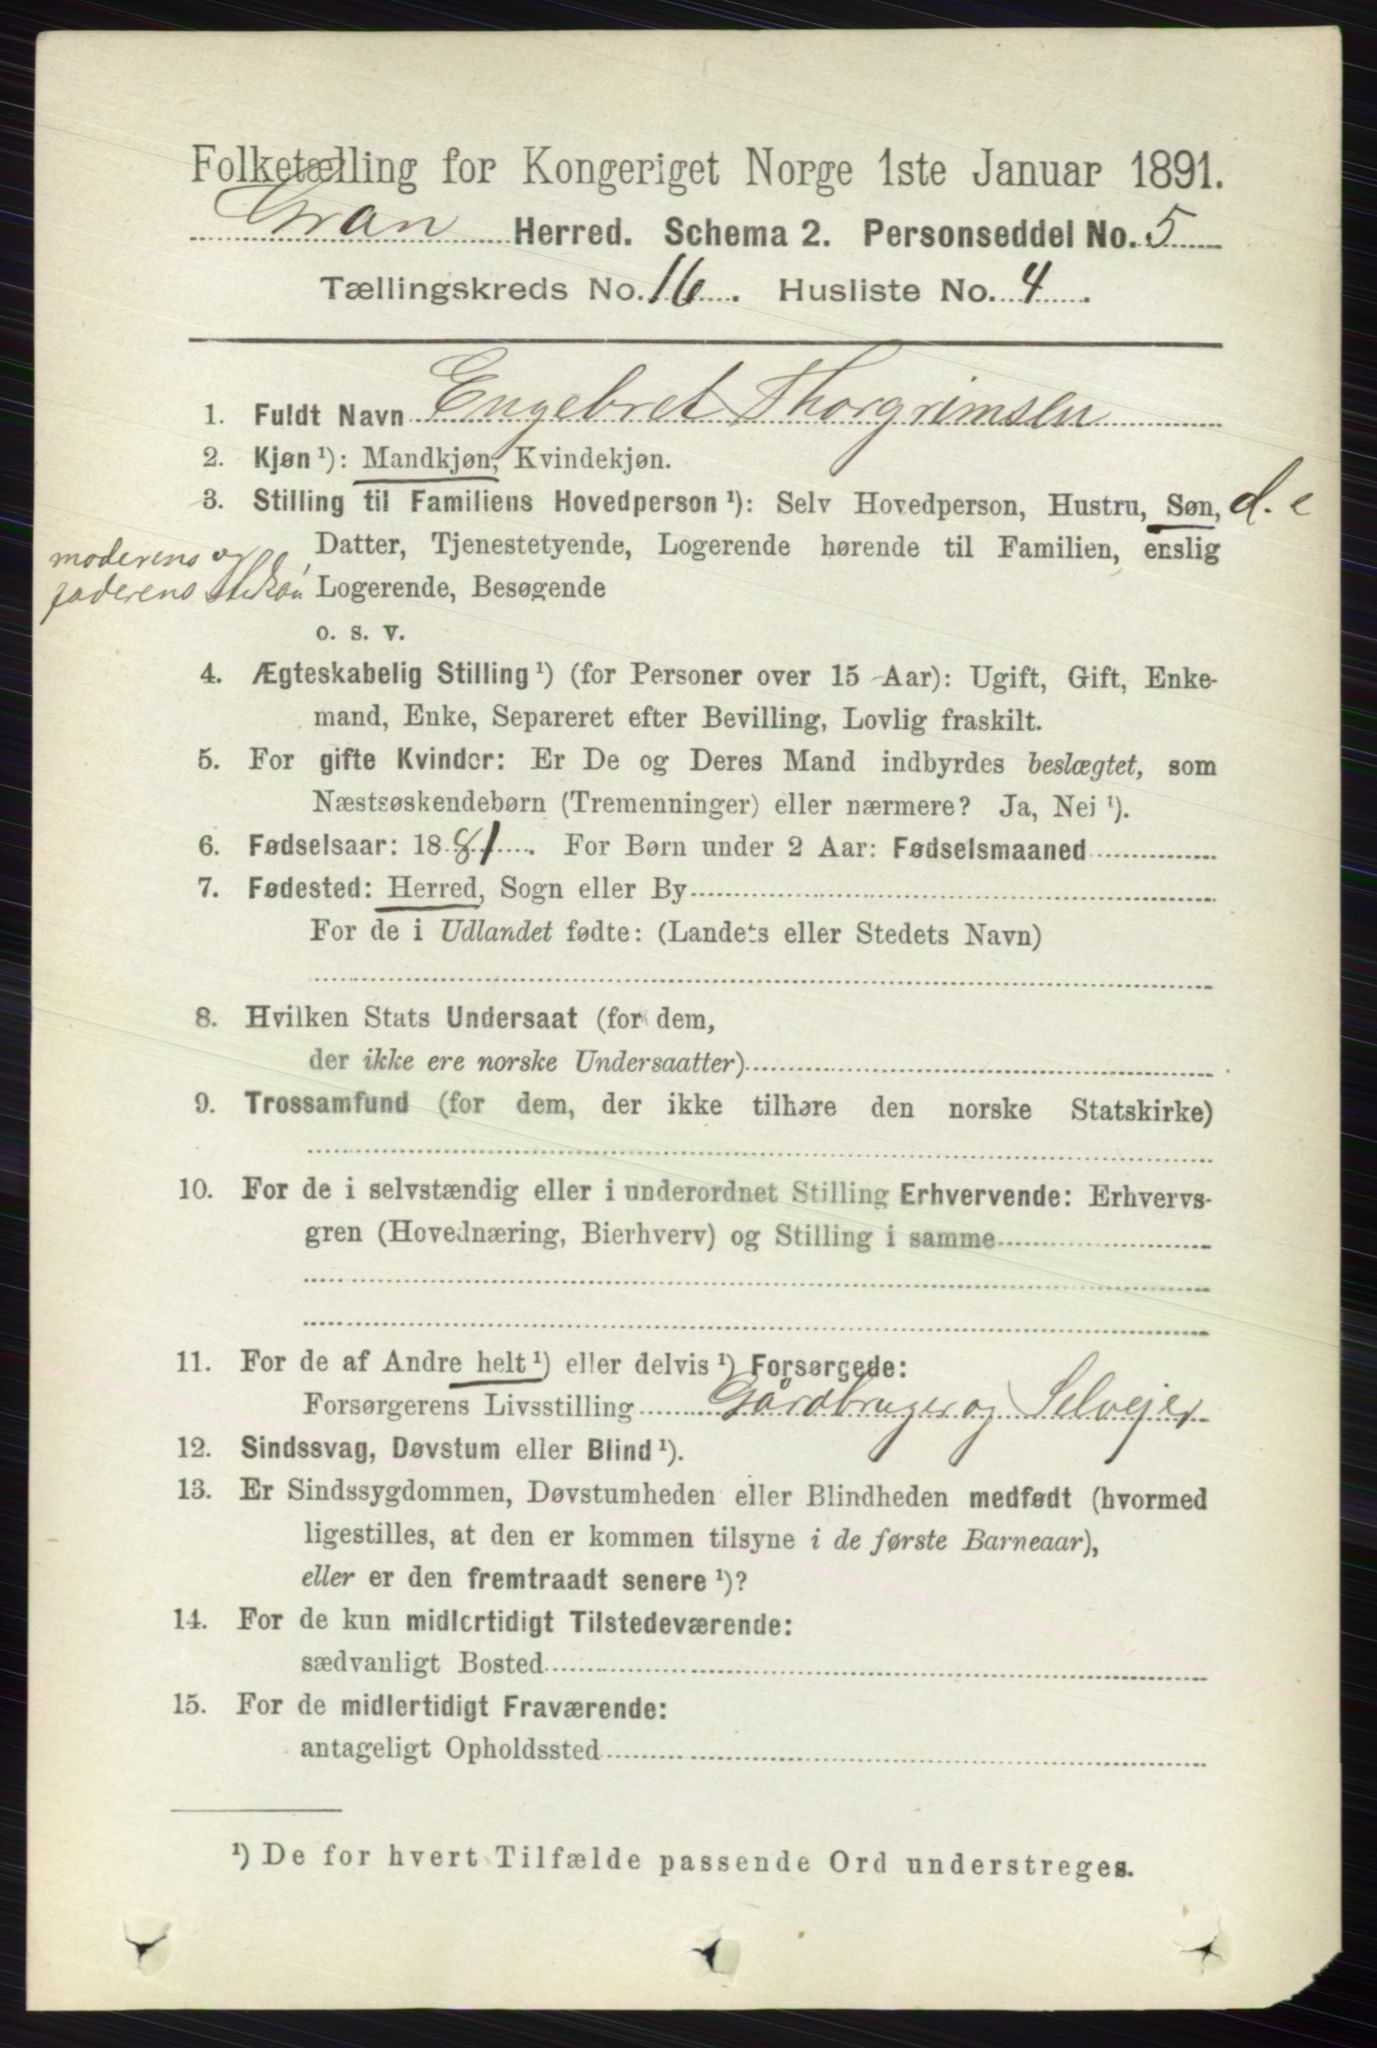 Folketælling for Kongeriget Norge 1ste Januar 1891.
Gran Herred. Schema 2. Personseddel No. 5
Tællingskreds No. 16. Husliste No. 4.
1. Fuldt Navn Engebret Thorgrimsen
2. Kjøn ¹): Mandkjøn, Kvindekjøn.
3. Stilling til Familiens Hovedperson ¹): Selv Hovedperson, Hustru, Søn, d. e
moderens og
faderens
Datter, Tjenestetyende, Logerende hørende til Familien, enslig
Logerende, Besøgende
o. s. v.
4. Ægteskabelig Stilling ¹) (for Personer over 15 Aar): Ugift, Gift, Enke-
mand, Enke, Separeret efter Bevilling, Lovlig fraskilt.
5. For gifte Kvinder: Er De og Deres Mand indbyrdes beslægtet, som
Næstsøskendebørn (Tremenninger) eller nærmere? Ja, Nei ¹).
6. Fødselsaar: 1881. For Børn under 2 Aar: Fødselsmaaned
7. Fødested: Herred, Sogn eller By
For de i Udlandet fødte: (Landets eller Stedets Navn)
8. Hvilken Stats Undersaat (for dem,
der ikke ere norske Undersaatter)
9. Trossamfund (for dem, der ikke tilhøre den norske Statskirke)
10. For de i selvstændig eller i underordnet Stilling Erhvervende: Erhvervs-
gren (Hovednæring, Bierhverv) og Stilling i samme
11. For de af Andre helt ¹) eller delvis ¹) Forsørgede:
Forsørgerens Livsstilling Gårdbruger og Selvejer
12. Sindssvag, Døvstum eller Blind ¹).
13. Er Sindssygdommen, Døvstumheden eller Blindheden medfødt (hvormed
ligestilles, at den er kommen tilsyne i de første Barneaar),
eller er den fremtraadt senere ¹)?
14. For de kun midlertidigt Tilstedeværende:
sædvanligt Bosted
15. For de midlertidigt Fraværende:
antageligt Opholdssted
¹) De for hvert Tilfælde passende Ord understreges.